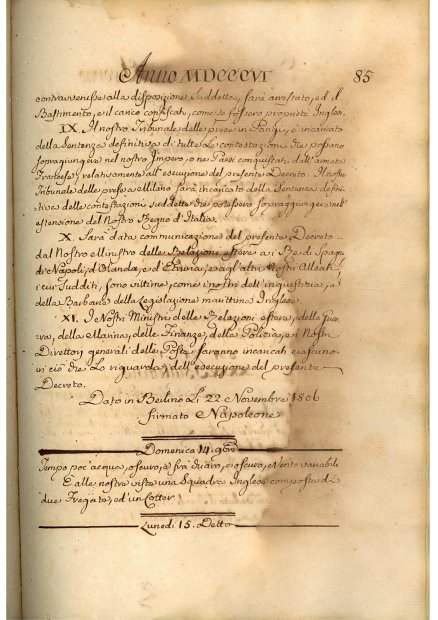 Anno MDCCCVI 85
contravvenisse alla disposizione suddetta, sarà arrestato, ed il
Bastimento, e il carico confiscato, come se fossero proprietà Inglesi.
IX. Il nostro Tribunale delle prese in Parigi, è incaricato
della Sentenza definitiva di tutte le contestazioni che possano
sopragiungere nel nostro Impero, o ne Paesi conquistati dall'armata
Francese, relativamente all'esecuzione del presente Decreto. Il nostro
Tribunale delle prese a Milano sarà incaricato della Sentenza defini-
tiva delle contestazioni suddette che potessero sopraggiungere nell'
estensione del Nostro Regno d'Italia.
X. Sarà data communicazione del presente Decreto
dal Nostro Ministro delle Relazioni estere a i Re di Spagna,
di Napoli, d'Olanda, e d'Etruria, e agl'altri Nostri Alleati,
i cui Sudditi, sono vittime, come i nostri dell'ingiustizia, e
della Barbarie della Legislazione marittima Inglese.
XI. I Nostri Ministri delle Relazioni estere, della Guer-
ra, della Marina, delle Finanze, della Polizia, e i Nostri
Direttori generali delle Poste saranno incaricati ciascuno
in ciò che Lo riguarda, dell'esecuzione del presente
Decreto.
Dato in Berlino Li 22 Novembre 1806
firmato Napoleone
Domenica 14. Xbre
Tempo poc'acqua, oscuro, e frà chiaro, e oscuro, Vento variabile
E alle nostre viste una Squadra Inglese composta di
due Fregate, ed un Cotter.
Lunedì 15. Detto